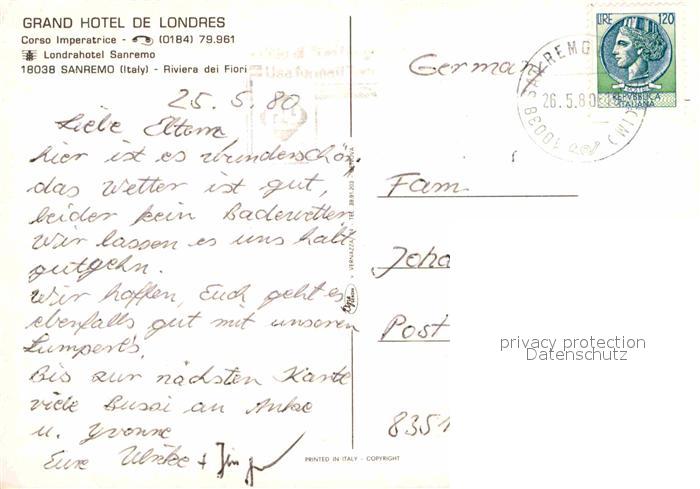 GRAND HOTEL DE LONDRES
Corso Imperatrice - (0184) 79.961
Londrahotel Sanremo
18038 SANREMO (Italy) - Riviera dei Fiori
25.5.80
Liebe Eltern
hier ist es wunderschön,
das Wetter ist gut,
leider kein Badewetter
Wir lassen es uns halt
gutgehn.
Wir hoffen, Euch geht es
ebenfalls gut mit unseren
Lumperls.
Bis zur nächsten Karte
viele Bussi an Anke
u. Yvonne
Eure Ulrike +
PRINTED IN ITALY - COPYRIGHT
Germany
LIRE 120
REPVBBLICA
ITALIANA
SANREMO
26.5.80
(IM)
18038
Fam
Joha
Post
8351
privacy protection
Datenschutz